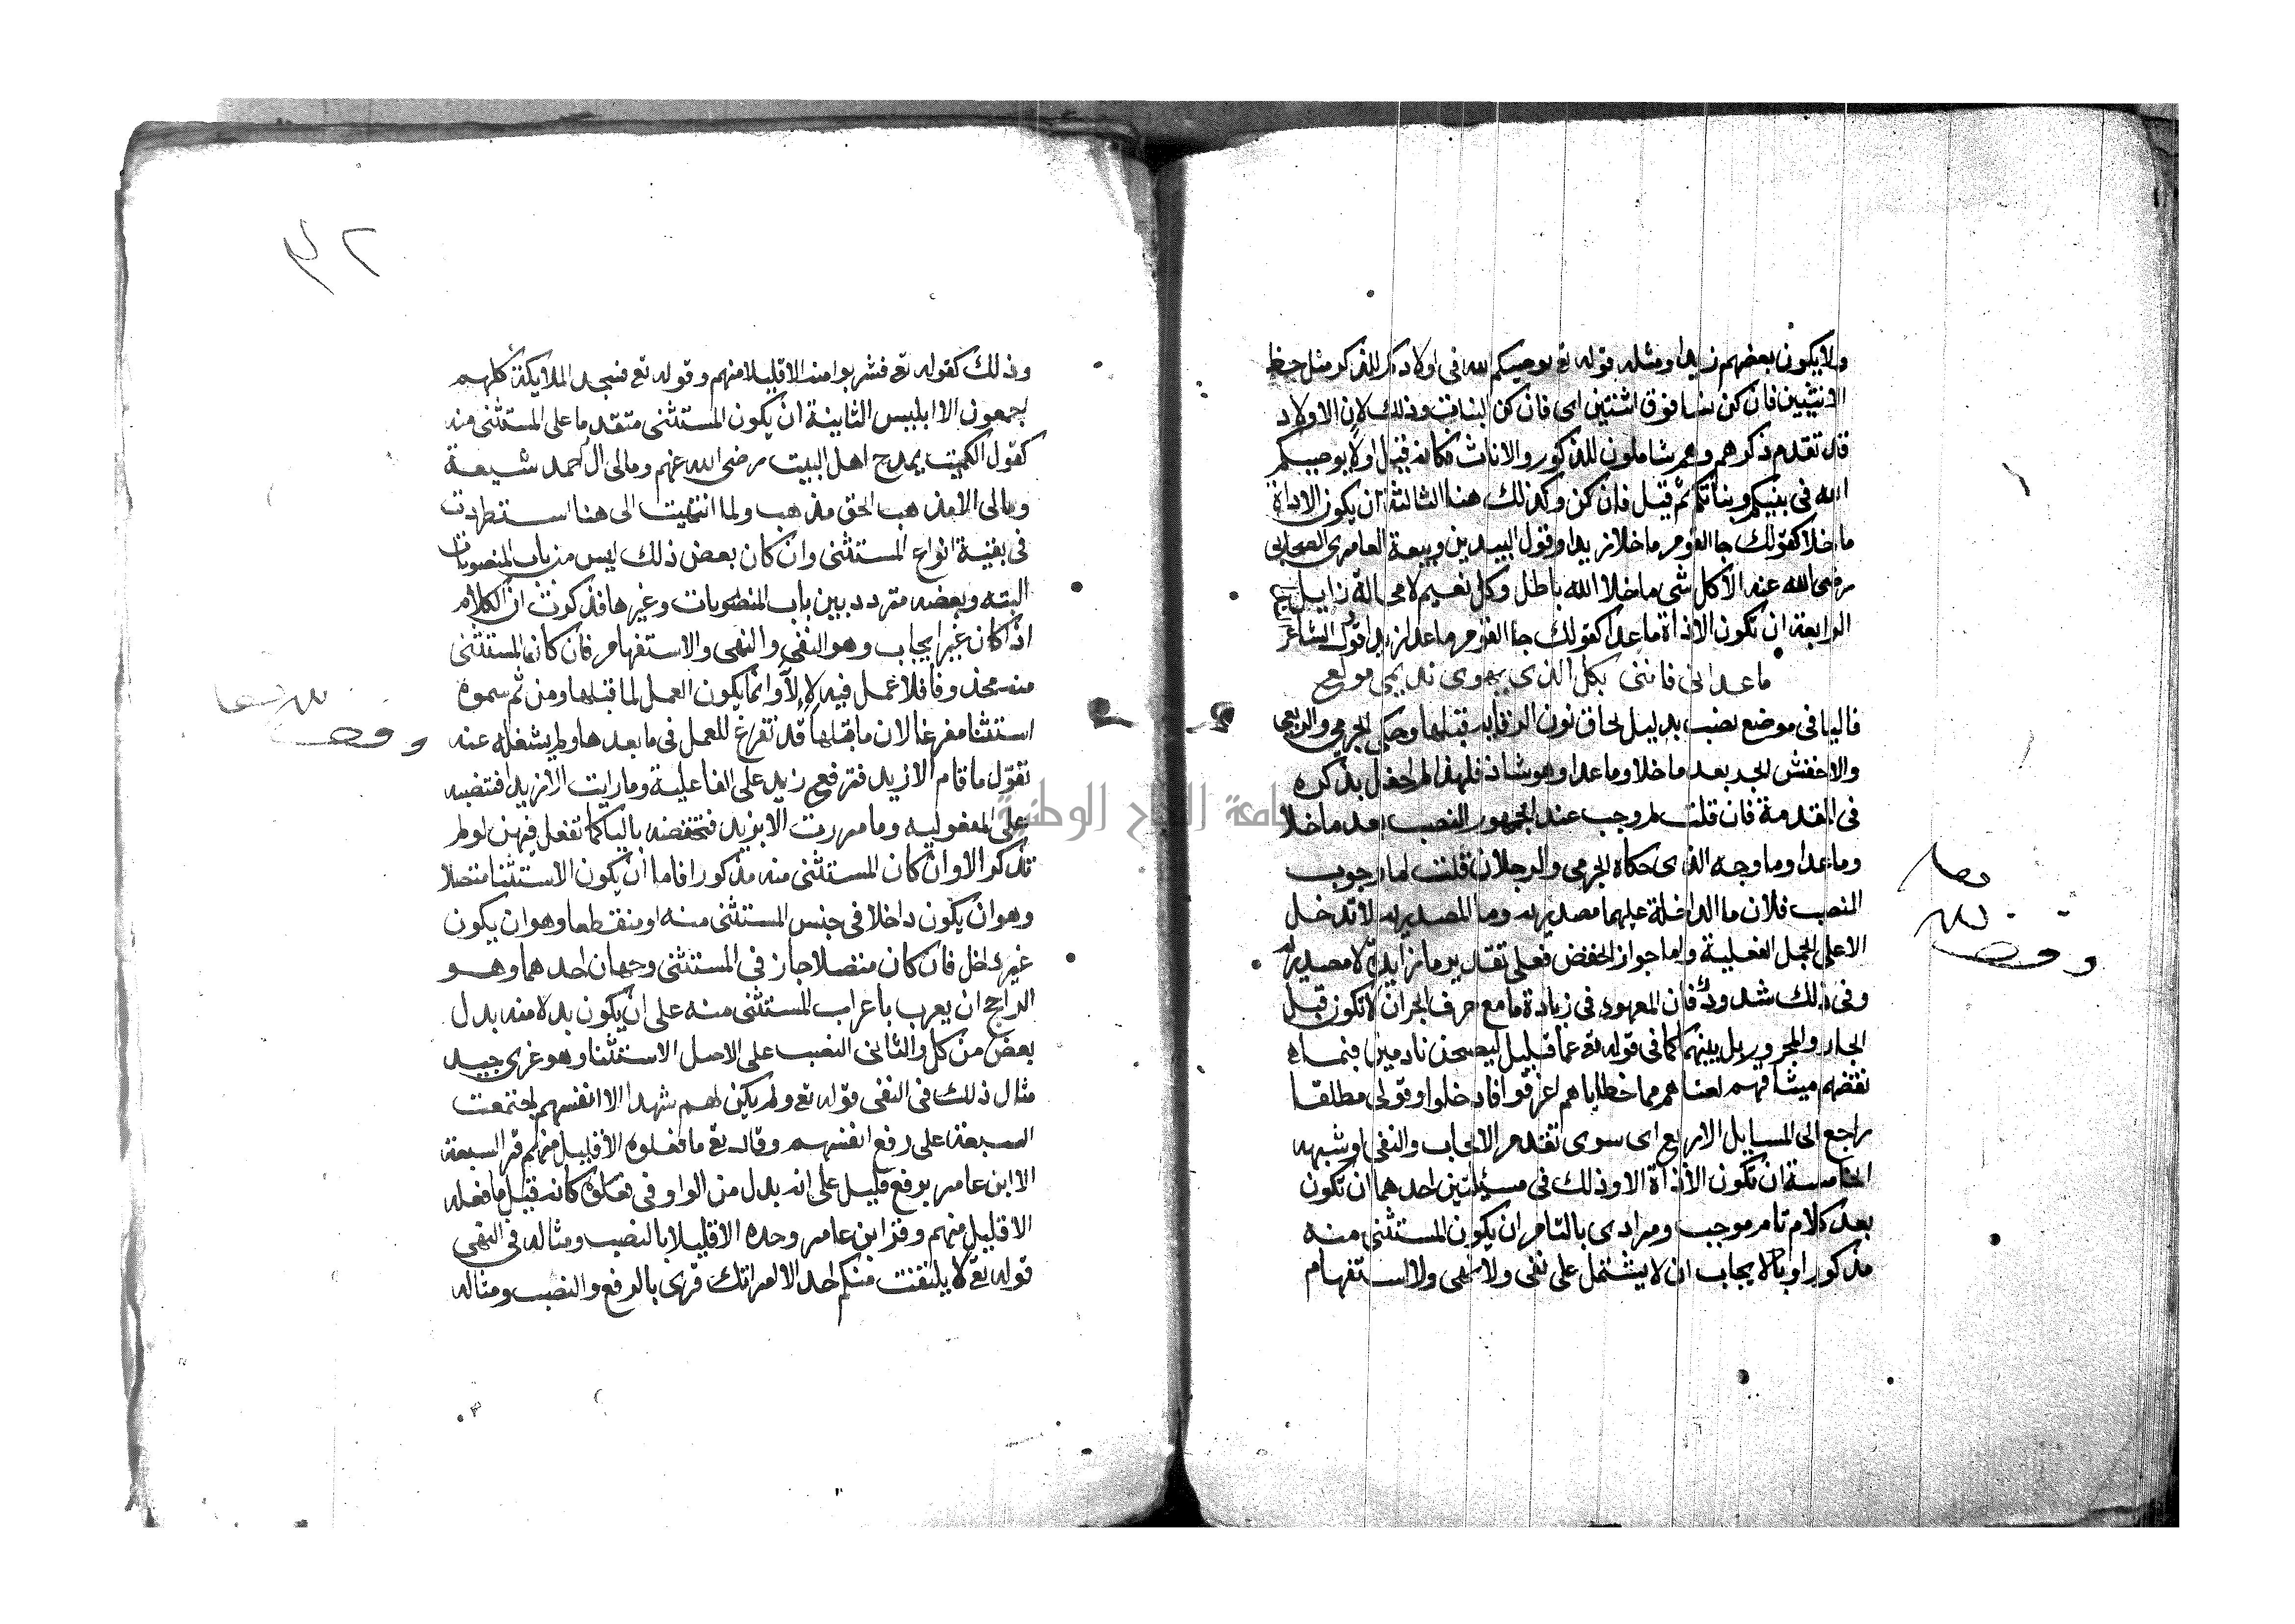 ولا يكون بعضهم زيدا ومثله قوله تع يوصيكم الله في اولادكم للذكر مثل حظ
الانثيين فان كن نسا فوق اثنتين اي فان كن البنات وذلك لان الاولاد
قد تقدم ذكرهم وهم شاملون للذكور والاناث فكانه قيل اولا يوصيكم
الله في بنيكم وبناتكم ثم قيل فان كن وكذلك هنا الثالثة ان يكون الاداة
ما خلا كقولك جا القوم ما خلا زيدا وقول لبيد بن ربيعة العامري الصحابي
رضى الله عنه الا كل شى ما خلا الله باطل وكل نعيم لا محالة زايل
الرابعة ان تكون الاداة ما عدا كقولك جا القوم ما عدا زيدا وقول الشاعر
ما عداني فانني بكل الذي يهوى نديمى مولع
فاليا في موضع نصب بدليل لحاق نون الوقايه قبلها وحكى الجرمي والربعي
والاخفش الجر بعد ما خلا وما عدا وهو شاذ فلهذا لم احفل بذكره
في المقدمة فان قلت لم وجب عند الجمهور النصب بعد ما خلا
وما عدا وما وجه الذي حكاه الجرمي والرجلان قلت اما وجوب
النصب فلان ما الداخلة عليهما مصدريه وما المصدريه لا تدخل
الا على الجمل الفعلية واما جواز الخفض فعلى تقدير ما زايدة لا مصدريه
وفي ذلك شذوذ فان المعهود في زيادة ما مع حرف الجر ان لا تكون قبل
الجار والمجرور بل بينهما كما في قوله تع عما قليل ليصبحن نادمين فبما
نقضهم ميثاقهم لعناهم مما خطاياهم اغرقوا فادخلوا وقولي مطلقا
راجع الى المسايل الاربع اي سوى تقدم الايجاب والنفي او شبهه
الخامسة ان تكون الاداة الا وذلك في مسئلتين احدهما ان تكون
بعد كلام تام موجب ومرادي بالتام ان يكون المستثنى منه
مذكورا وبالايجاب ان لا يشتمل على نفي ولا نهي ولا استفهام
وقف
لله
وذلك كقوله تع فشربوا منه الا قليلا منهم وقوله تع فسجد الملايكة كلهم
اجمعون الا ابليس الثانية ان يكون المستثنى متقدما على المستثنى منه
كقول الكميت يمدح اهل البيت رضى الله عنهم ومالى ال احمد شيعة
ومالى الا مذهب الحق مذهب ولما انتهيت الى هنا استطردت
في بقية انواع المستثنى وان كان بعض ذلك ليس من باب المنصوبات
البته وبعضه متردد بين باب المنصوبات وغيرها فذكرت ان الكلام
اذا كان غير ايجاب وهو النفي والنهى والاستفهام فان كان المستثنى
منه محذوفا فلا عمل فيه لالا وانما يكون العمل لما قبلها ومن ثم سموه
استثنا مفرغا لان ما قبلها قد تفرغ للعمل في ما بعدها ولم يشغله عنه
تقول ما قام الا زيد فترفع زيد على الفاعلية وما رايت الا زيدا فتنصبه
على المفعوليه وما مررت الا بزيد فتخفضه باليا كما تفعل فيهن لو لم
تذكر الا وان كان المستثنى منه مذكورا فاما ان يكون الاستثنا متصلا
وهو ان يكون داخلا في جنس المستثنى منه او منقطعا وهو ان يكون
غير داخل فان كان متصلا جاز في المستثنى وجهان احدهما وهو
الراجح ان يعرب باعراب المستثنى منه على ان يكون بدلا منه بدل
بعض من كل والثاني النصب على الاصل الاستثنا وهو عربي جيد
مثال ذلك في النفى قوله تع ولم يكن لهم شهدا الا انفسهم اجتمعت
السبعة على رفع انفسهم وقال تع ما فعلوه الا قليل منهم قرا السبعة
الا ابن عامر برفع قليل على انه بدل من الواو في فعلوه كانه قيل ما فعله
الا قليل منهم وقرا ابن عامر وحده الا قليلا بالنصب ومثاله في النهى
قوله تع لا يلتفت منكم احد الا امراتك قرى بالرفع والنصب ومثاله
وقف
لله
جامعة النجاح الوطنية